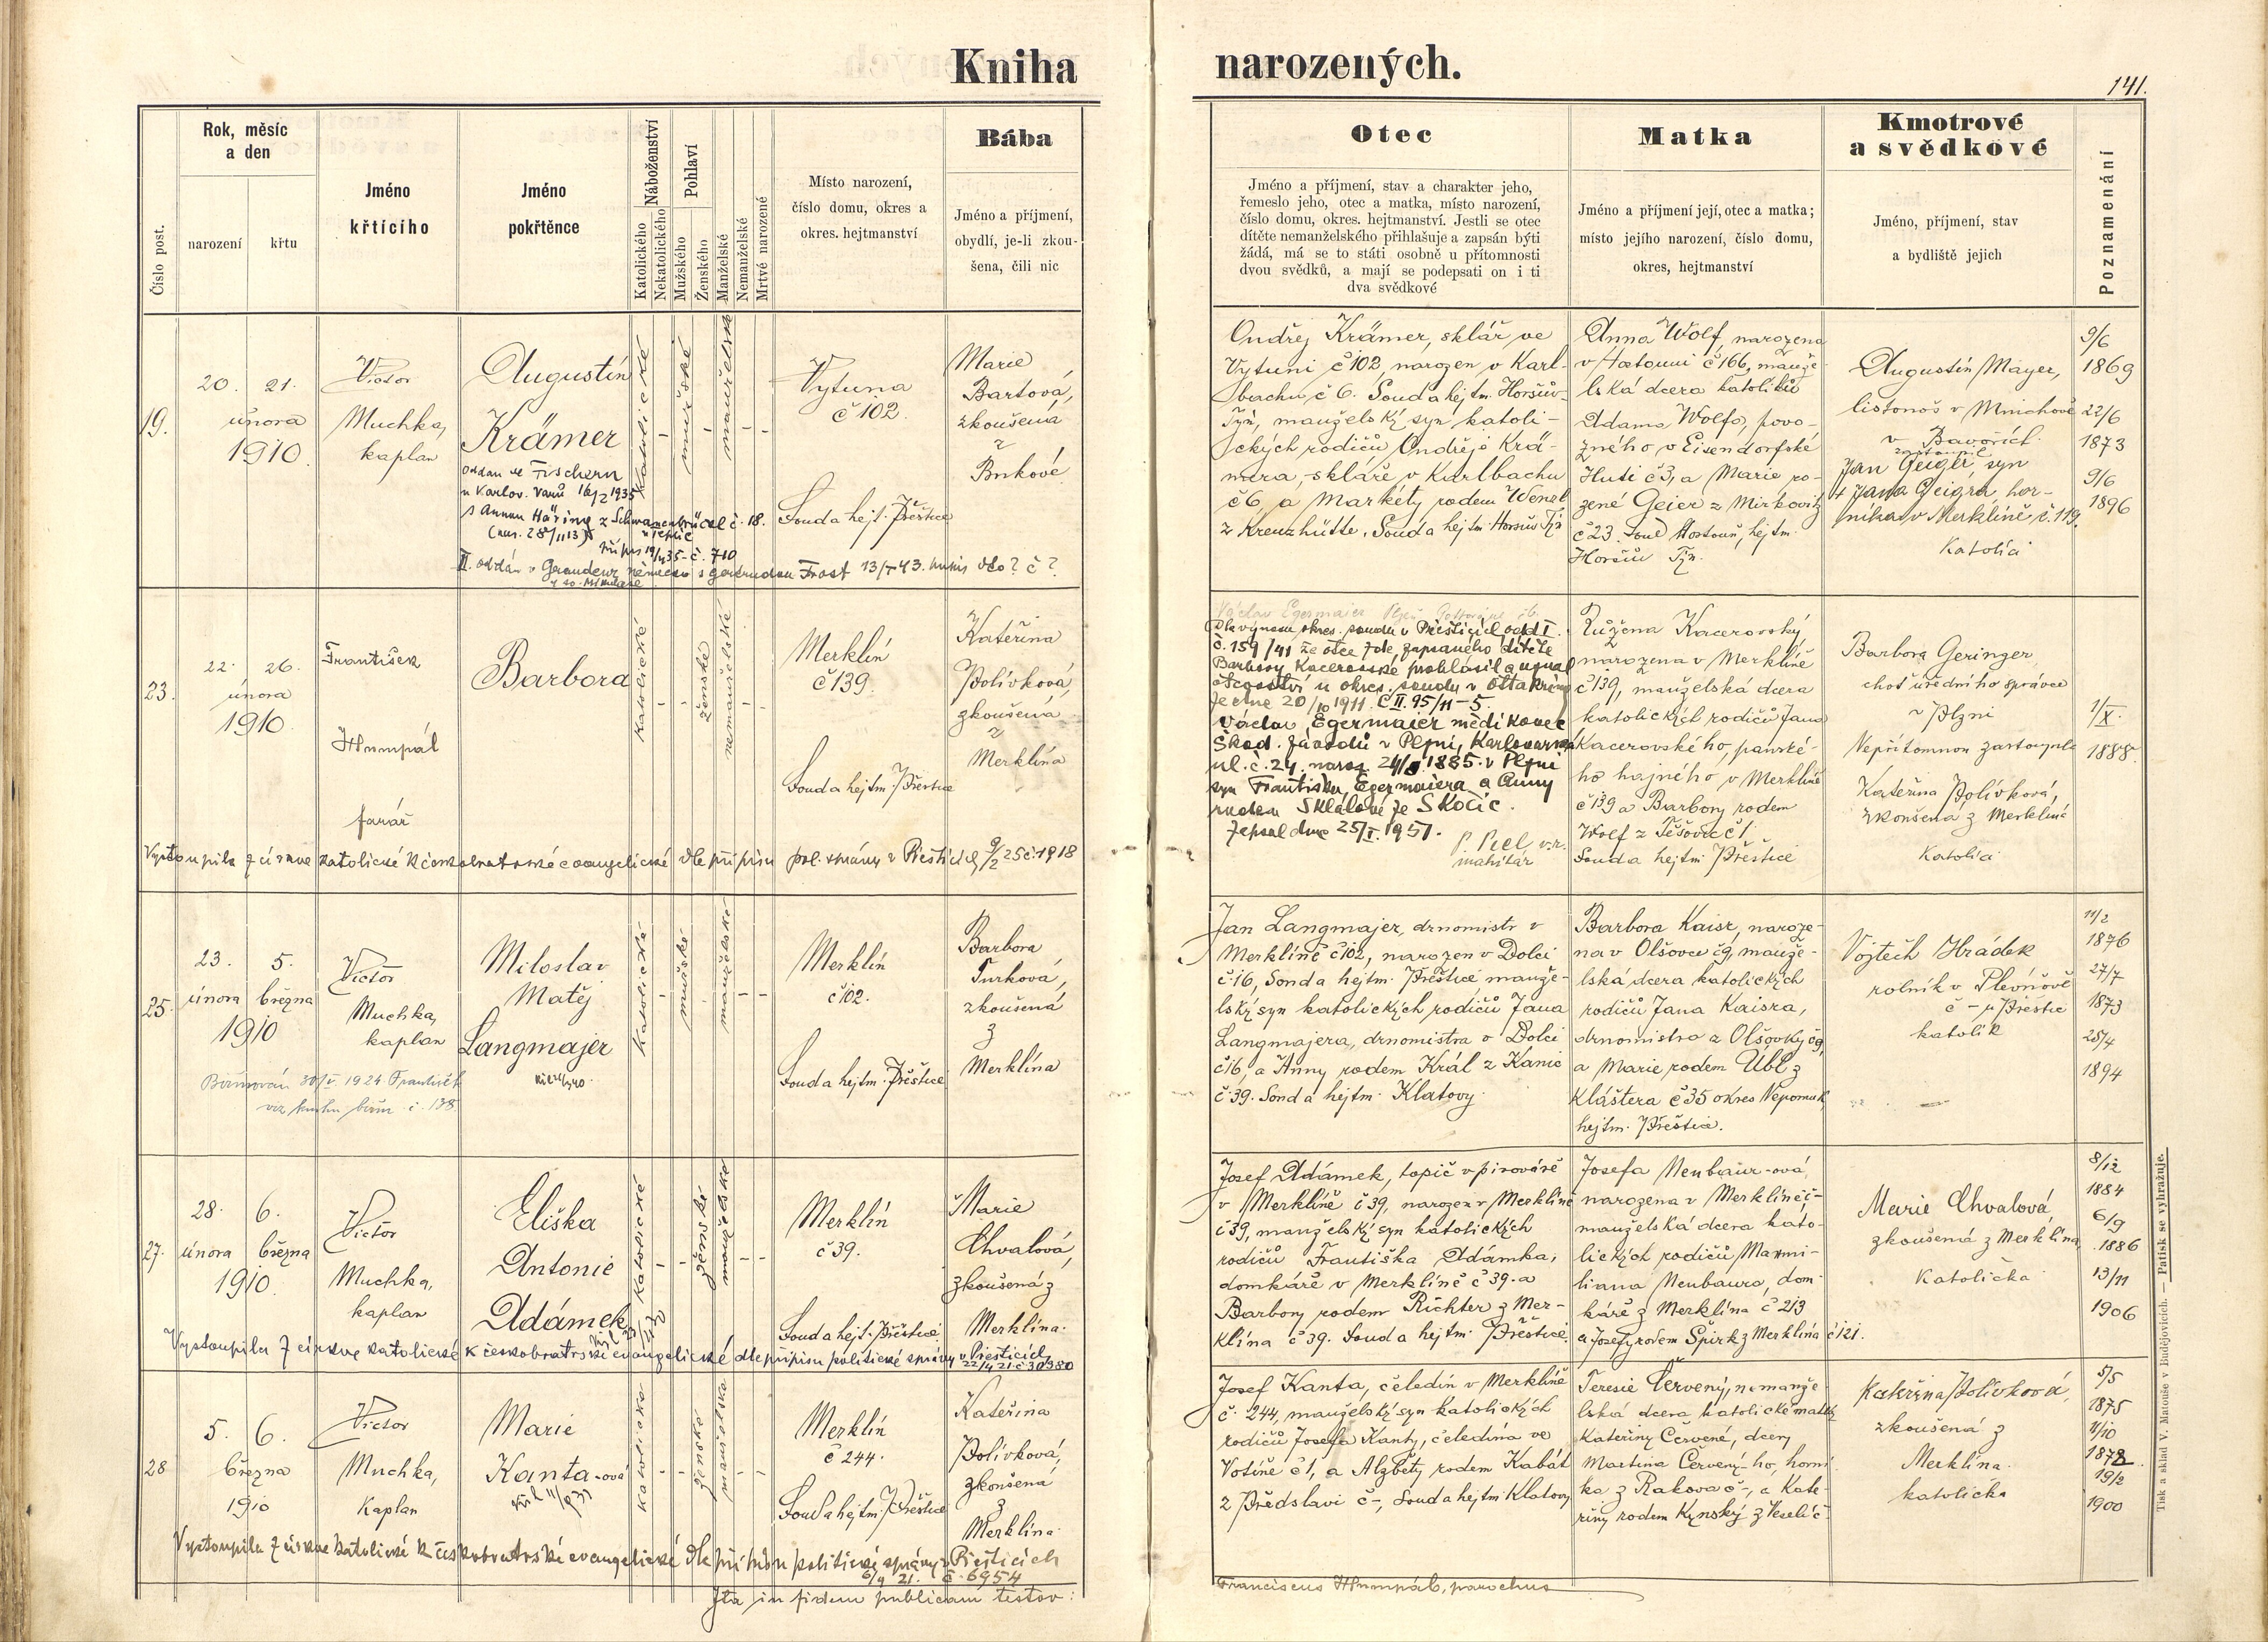 Kniha narozených.
141.
Číslo post.
Rok, měsíc
a den
narození
křtu
Jméno
křtícího
Jméno
pokřtěnce
Náboženství
Katolického
Nekatolického
Pohlaví
Mužského
Ženského
Manželské
Nemanželské
Mrtvé narozené
Místo narození,
číslo domu, okres a
okres. hejtmanství
Bába
Jméno a příjmení,
obydlí, je-li zkou-
šena, čili nic
Otec
Jméno a příjmení, stav a charakter jeho,
řemeslo jeho, otec a matka, místo narození,
číslo domu, okres. hejtmanství. Jestli se otec
dítěte nemanželského přihlašuje a zapsán býti
žádá, má se to státi osobně u přítomnosti
dvou svědků, a mají se podepsati on i ti
dva svědkové
Matka
Jméno a příjmení její, otec a matka;
místo jejího narození, číslo domu,
okres, hejtmanství
Kmotrové
a svědkové
Jméno, příjmení, stav
a bydliště jejich
Poznamenání
19.
20. 21.
února
1910.
Victor
Muchka,
kaplan
Augustin
Krämer
oddán ve Fischern
u Karlov. Varů 16/2 1935
s Annou Häring z Schwanenbrückel č. 18.
(nar. 28/11 13)
II. oddán v Graudenz německo s Gertrudou Frost 13/I 43.
katolické
mužské
manželské
Vytuna
č 102.
Soud a hejt. Přeštice
Marie
Bartová,
zkoušená
z
Brnkové
Ondřej Krämer, sklář ve
Vytuni č 102, narozen v Karl-
bachu č 6. Soud a hejtm. Horšův-
Týn, manželský syn katoli-
ckých rodičů Ondřeje Krä-
mera, skláře v Karlbachu
č 6, a Markéty rodem Wenzl
z Kreuzhütte, Soud a hejtm Horšův Týn
Anna Wolf, narozena
v Hostouni č 166, manže-
lská dcera katolíků
Adama Wolfa, povo-
zného v Eisendorfské
Huti č 3, a Marie ro-
zené Geier z Mirkovic
č 23. Soud Hostouň, hejtm.
Horšův Týn.
Augustin Mayer,
listonoš v Mnichově
v Bavořích.
zastoupil
Jan Geiger, syn
+ Jana Geigra, hor-
níka v Merklíně č. 119.
Katolíci
9/6
1869
22/6
1873
9/6
1896
23.
22. 26.
února
1910
František
Humpál
farář
Barbora
katolické
ženské
nemanželské
Merklín
č 139.
Soud a hejtm. Přeštice
Kateřina
Polívková,
zkoušená
z
Merklína
Vystoupila z církve katolické k českobratrské evangelické dle přípisu pol. správy v Přešticích 9/2 25 č. 1918
Dle výnosu okres. soudu v Přešticích odd I.
č. 159/41 že otce zde zapsaného dítěte
Barbory Kacerovské prohlásil a uznal
otcovství u okres. soudu v Ottakringu
je dne 20/10 1911. C II. 95/11-5.
Václav Egermaier mědikovec
Škod. závodů v Plzni, Karlovarská
ul. č. 24. naroz 24/9 1885 v Plzni
syn Františka Egermaiera a Anny
rodem Sklálové ze Skočic.
Zepsal dne 25/I. 1951.
Růžena Kacerovský,
narozena v Merklíně
č 139, manželská dcera
katolických rodičů Jana
Kacerovského, panské-
ho hajného v Merklíně
č 139 a Barbory rodem
Wolf z Těšovic č 1.
Soud a hejtm Přeštice
Barbora Geringer
choť úředního správce
v Plzni
Nepřítomnou zastoupila
Kateřina Polívková,
zkoušená z Merklína
Katolíci
1/X.
1888.
25.
23. 5.
února března
1910
Victor
Muchka,
kaplan
Miloslav
Matěj
Langmajer
Biřmován 30/V. 1924 František
viz knihu biřm. č. 138.
Katolické
mužské
manželské
Merklín
č 102.
Soud a hejtm. Přeštice
Barbora
Turková,
zkoušená
z
Merklína
Jan Langmajer, drnomistr v
Merklíně č 102, narozen v Dolci
č 16, Soud a hejtm. Přeštice manže-
lský syn katolických rodičů Jana
Langmajera, drnomistra v Dolci
č 16, a Anny rodem Král z Kanic
č 39. Soud a hejtm. Klatovy.
Barbora Kaisr, naroze-
na v Olšovce č 9, manže-
lská dcera katolických
rodičů Jana Kaisra,
drnomistra z Olšovky č 9,
a Marie rodem Übl z
Kláštera č 35 okres Nepomuk,
hejtm. Přeštice.
Vojtěch Hrádek
rolník v Plevňově
č – u Přeštic
katolík
11/2
1876
27/7
1873
25/4
1894
27.
28. 6.
února března
1910.
Victor
Muchka,
kaplan
Eliška
Antonie
Adámek
Katolické
ženské
manželské
Merklín
č 39.
Soud a hejt. Přeštice
Marie
Chvalová,
zkoušená z
Merklína.
Vystoupila z církve katolické k českobratrské evangelické dle přípisu politické správy v Přešticích
22/4 21 č 30380
Josef Adámek, topič v pivováře
v Merklíně č 39, narozen v Merklíně
č 39, manželský syn katolických
rodičů Františka Adámka,
domkáře v Merklíně č 39. a
Barbory rodem Richter z Mer-
klína č 39. Soud a hejtm. Přeštice
Josefa Neubaur-ová,
narozena v Merklíně č –
manželská dcera kato-
lických rodičů Maxmi-
liana Neubaura, dom-
káře z Merklína č 213
a Josefy rodem Špirk z Merklína č 121.
Marie Chvalová,
zkoušená z Merklína
Katolička
8/12
1884
6/9
1886
13/11
1906
28
5. 6.
března
1910
Victor
Muchka,
Kaplan
Marie
Kanta-ová
Katolické
ženské
manželské
Merklín
č 244.
Soud a hejtm Přeštice
Kateřina
Polívková,
zkoušená
z
Merklína
Vystoupila z církve katolické k českobratrské evangelické dle přípisu politické správy v Přešticích
6/9 21. č. 6954
Josef Kanta, čeledín v Merklíně
č. 244, manželský syn katolických
rodičů Josefa Kanty, čeledína ve
Votíně č 1, a Alžběty rodem Kabát
z Předslavi č –, Soud a hejtm Klatovy
Teresie Červený, nemanže-
lská dcera katolické matky
Kateřiny Červené, dcery
Martina Červený-ho, horní-
ka z Rakova č –, a Kate-
řiny rodem Kynský z Veselí č –
Kateřina Polívková,
zkoušená z
Merklína.
katolička
5/5
1875
11/10
1872
19/2
1900
Ita in fidem publicam testor:
Franciscus Humpál, parochus
Tisk a sklad V. Matouše v Budějovicích. — Patisk se vyhražuje.